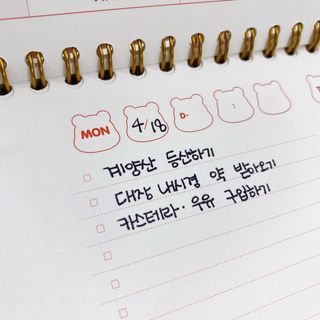 MON 4/18 D- :
계양산 등산하기
대장 내시경 약 받아오기
카스테라·우유 구입하기